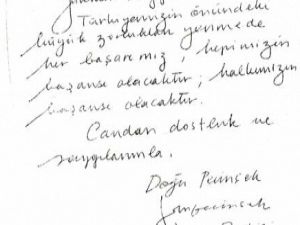 Türkiyemizin önündeki
büyük zorukları yenmede
her başarımız, hepimizin
başarısı olacaktır; halkımızın
başarısı olacaktır.
Candan dostluk ve
saygılarımla.
Doğu Perinçek